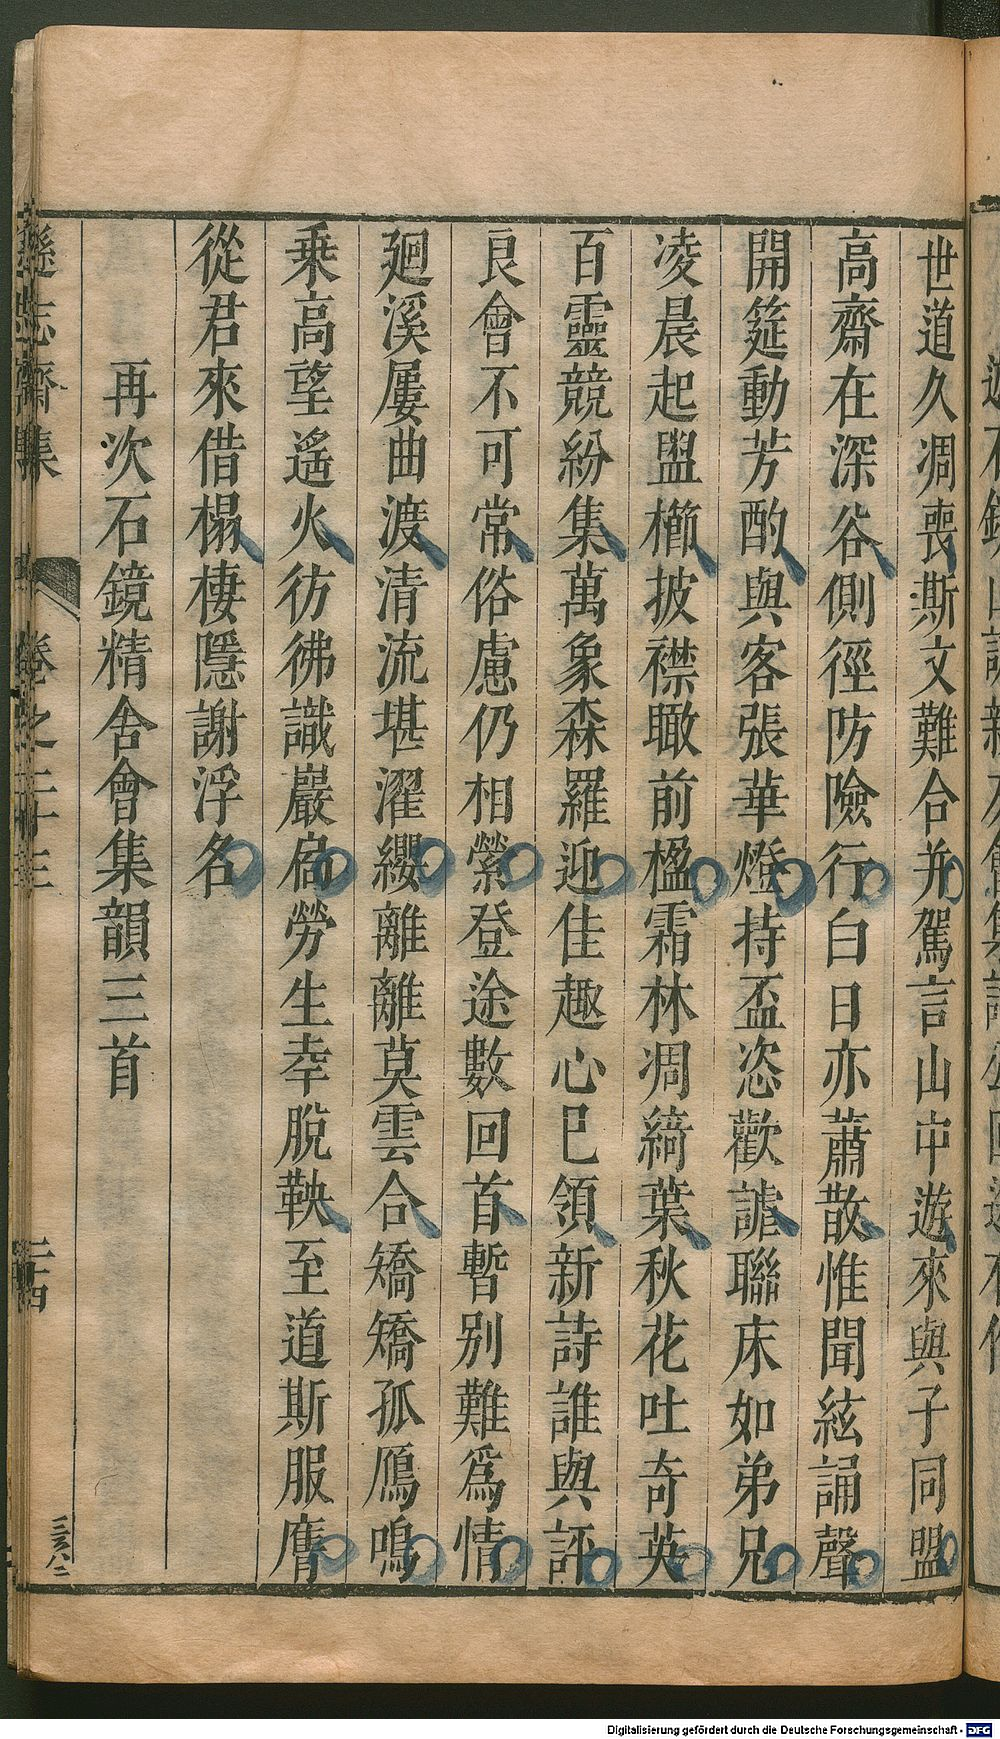 世道久凋喪斯文難合并駕言山中遊來與子同盟
高齋在深谷側徑防險行白日亦蕭散惟聞絃誦聲
開筵動芳酌與客張華燈持盃恣歡謔聯床如弟兄
凌晨起盥櫛披襟瞰前楹霜林凋綺葉秋花吐奇英
百靈競紛集萬象森羅迎佳趣心已領新詩誰與評
良會不可常俗慮仍相縈登途數回首暫别難爲情
廻溪屢曲渡清流堪濯纓離離莫雲合矯矯孤鴈鳴
乗高望遥火彷彿識巖扃勞生幸脫鞅至道斯服膺
從君來借榻棲隱謝浮名
再次石鏡精舍會集韻三首
遜志齋集
卷之二十三
二十四
三六八二
Digitalisierung gefördert durch die Deutsche Forschungsgemeinschaft - DFG